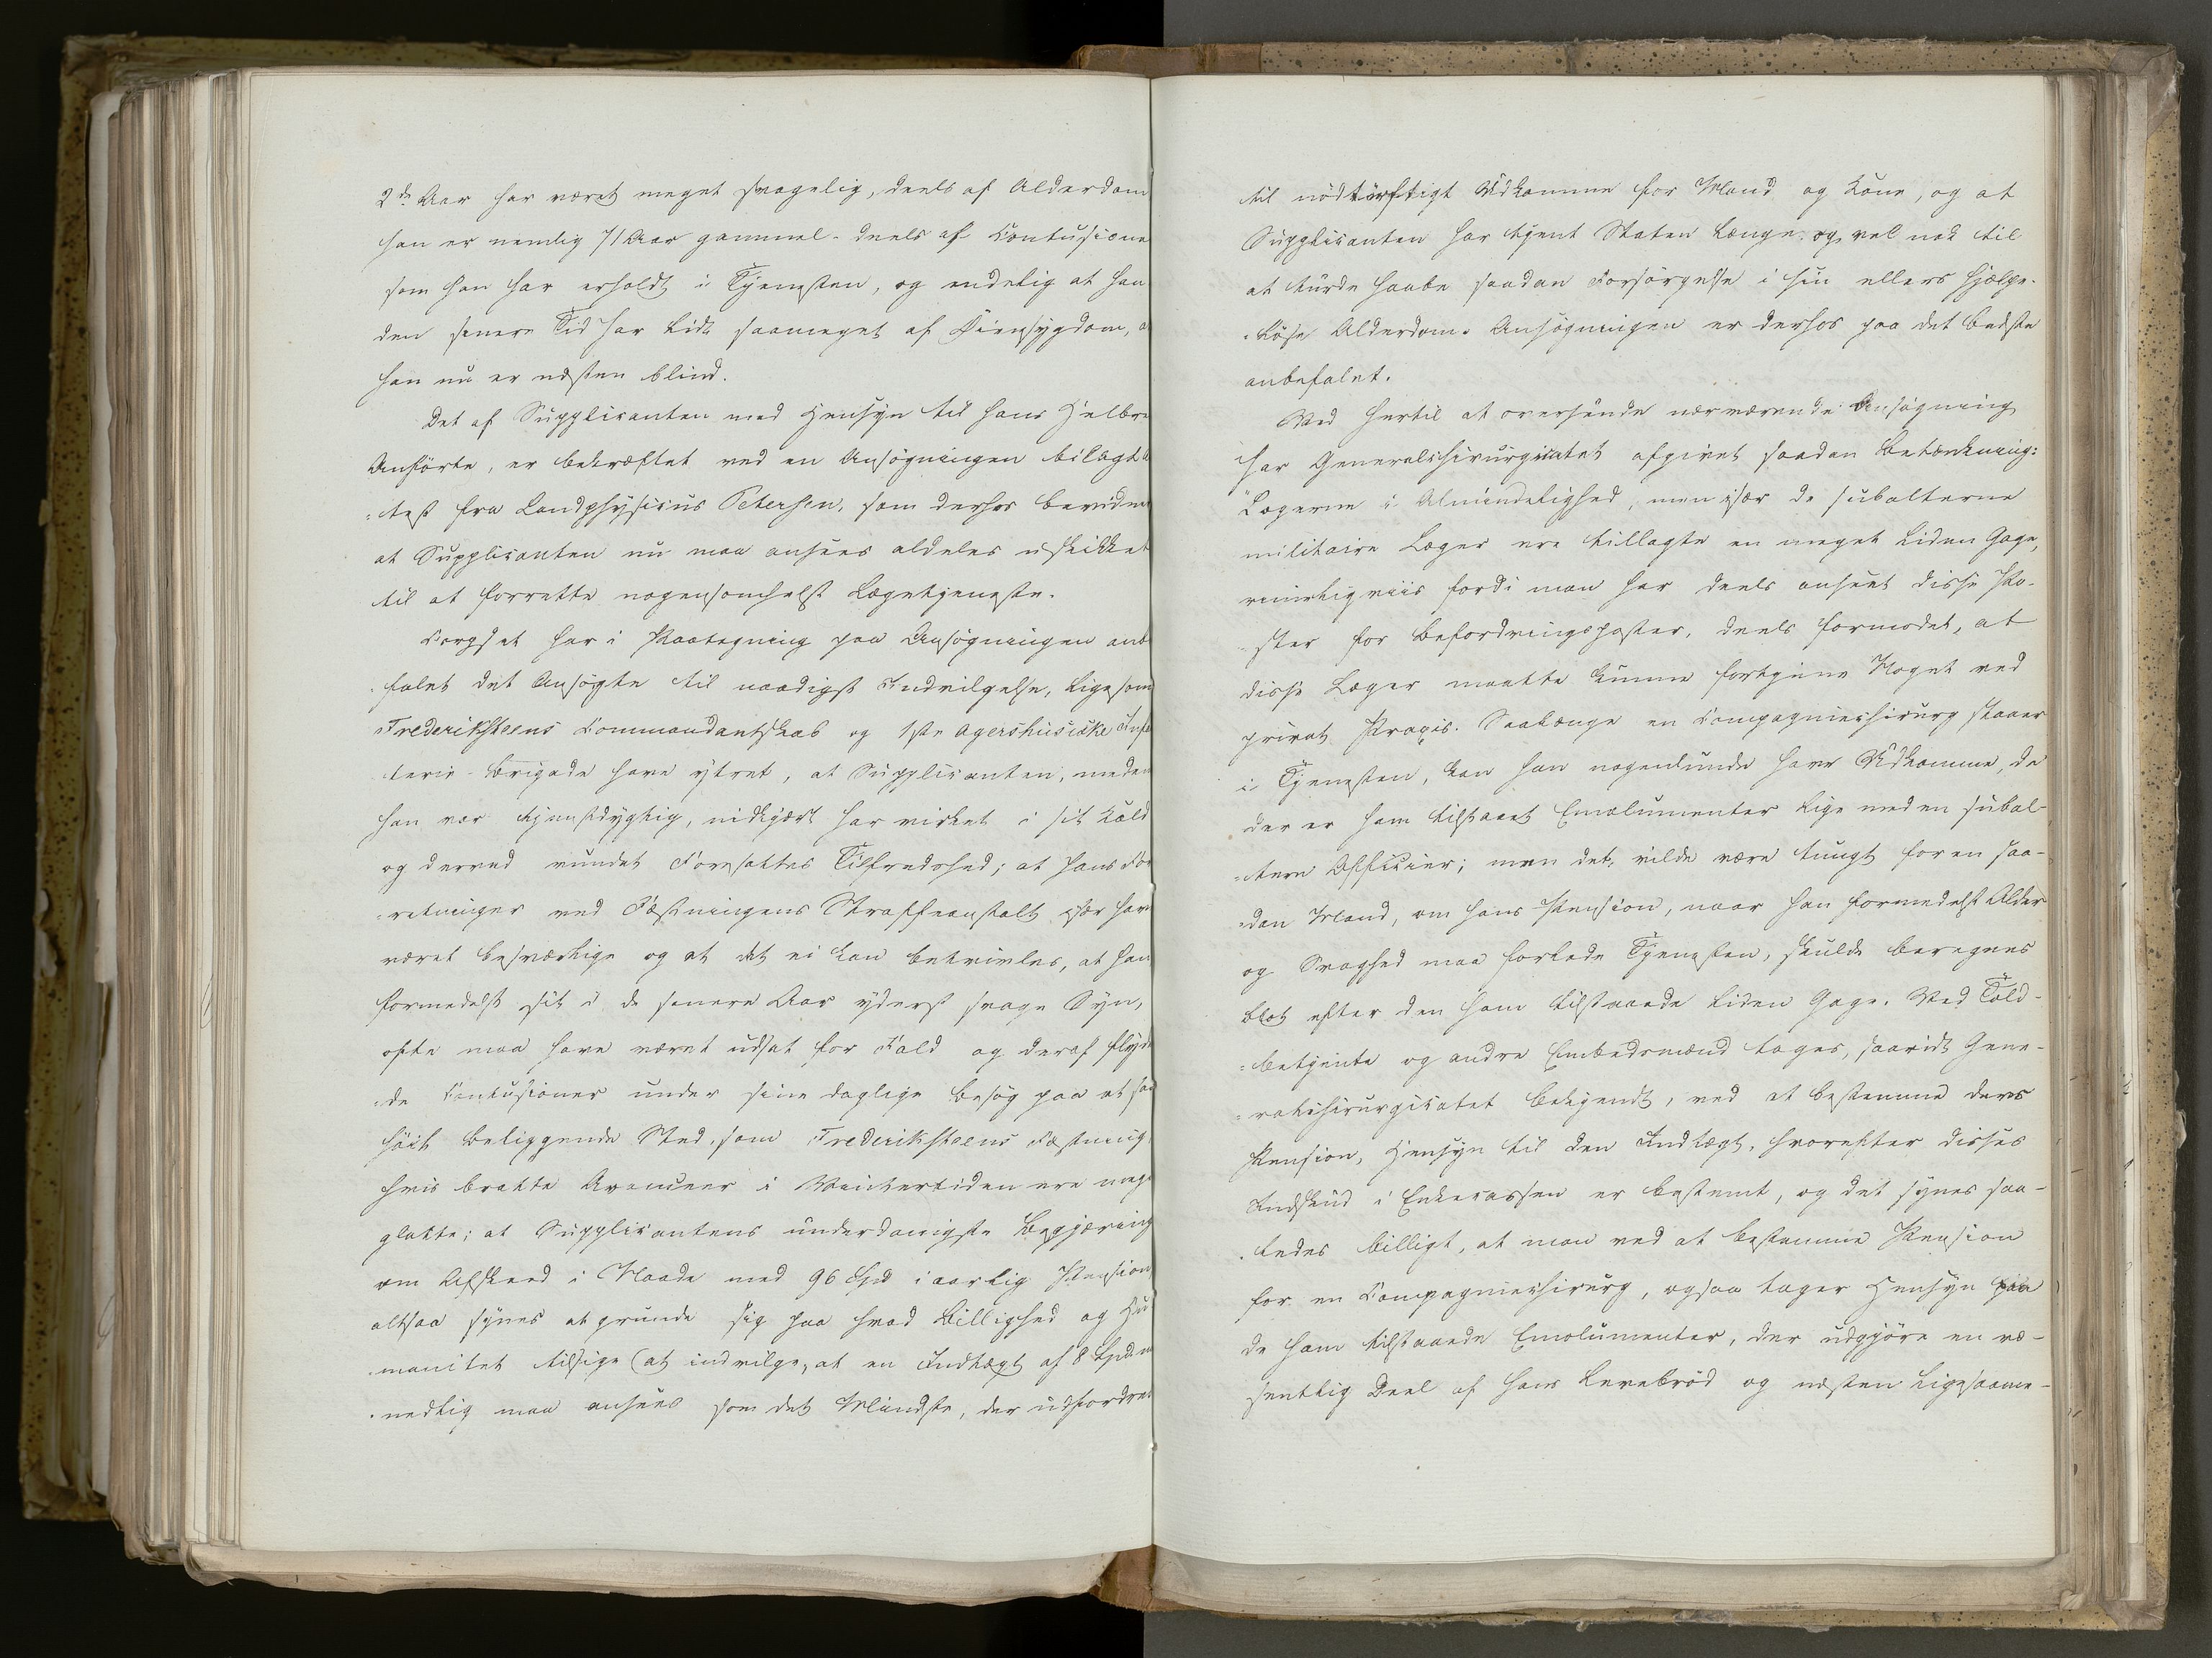 2de Aar har været meget svagelig, deels af Alderdom
han er nemlig 71 Aar gammel - deels af Contusione
som han har erholdt i Tjenesten, og endelig at han
den senere Tid har lidt saameget af Øiensygdom, a
han nu er næsten blind.
Det af Supplicanten med Hensyn til hans Helbre
Anførte, er bekræftet ved en Ansøgningen bilagt A
=test fra Landphysicus Petersen, som derhos bevidne
at Supplicanten nu maa ansees aldeles uskikket
til at forrette nogensomhelst Lægetjeneste.
Corpset har i Paategning paa Ansøgningen anb
=falet det Ansøgte til naadigst Indvilgelse, ligesom
Frederiksteens Commandantskab og 1ste Agershusiske Infa
terie-Brigade have ytret, at Supplicanten, meden
han var tjenstdygtig, nidkjært har virket i sit Kald
og derved vundet Foresattes Tilfredshed; at hans For
=retninger ved Fæstningens Straffeanstalt især have
været besværlige og at det ei kan betvivles, at han
formedelst sit i de senere Aar yderst svage Syn,
ofte maa have været udsat for Fald og deraf flyde
=de Contusioner under sine daglige Besøg paa et saa
høit beliggende Sted, som Frederiksteens Fæstning,
hvis bratte Avenuer i Vintertiden ere mege
glatte; at Supplicantens underdanigste Begjæring
om Afskeed i Naade med 96 Spd i aarlig Pension,
altsaa synes at grunde sig paa hvad Billighed og Hu
=manitet tilsige (at indvilge, at en Indtægt af 8 Spd. m
=nedlig maa ansees som det Mindste, der udfordres
til nødtørftigt Udkomme for Mand og Kone, og at
Supplicanten har tjent Staten længe og vel nok til
at turde haabe saadan Forsørgelse i sin ellers hjælpe-
=løse Alderdom. Ansøgningen er derhos paa det bedste
anbefalet.
Ved hertil at oversende nærværende Ansøgning
har Generalchirurgicatet afgivet saadan Betænkning:
"Lægerne i Almindelighed, men især de subalterne
militaire Læger ere tillagte en meget liden Gage,
rimeligviis fordi man har deels anseet disse Po-
ster for Befordringsposter, deels formodet, at
disse Læger maatte kunne fortjene Noget ved
privat Praxis. Saalænge en Compagniechirurg staaer
i Tjenesten, kan han nogenlunde have Udkomme, da
der er ham tilstaaet Emolumenter lige med en subal-
=tern Officier; men det vilde være tungt for en saa-
=dan Mand, om hans Pension, naar han formedelst Alder
og Svaghed maa forlade Tjenesten, skulde beregnes
blot efter den ham tilstaaede liden Gage. Ved Told-
=betjente og andre Embedsmænd tages, saavidt Gene-
=ralchirurgicatet bekjendt, ved at bestemme deres
Pension, Hensyn til den Indtægt, hvorefter disses
Indskud i Enkecassen er bestemt, og det synes saa-
=ledes billigt, at man ved at bestemme Pension
for en Compagniechirurg, ogsaa tager Hensyn paa
de ham tilstaaede Emolumenter, der udgjøre en væ-
sentlig Deel af hans Levebrød og næsten ligesaame-